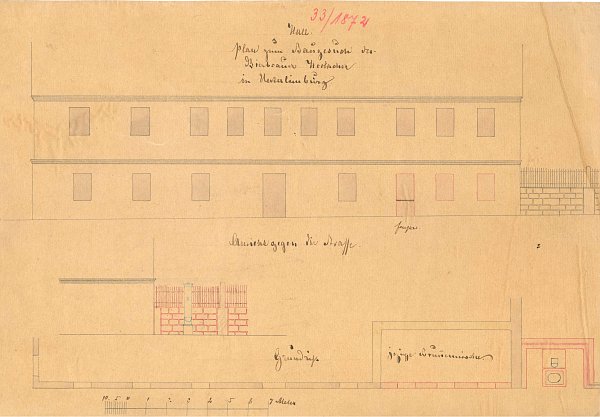 33/1872
Hall.
Plan zum Baugesuch des
Bierbrauer
in Unterlimburg
Ansicht gegen die Straße.
Grundriß
10 5 0 1 2 3 4 5 6 7 Meter